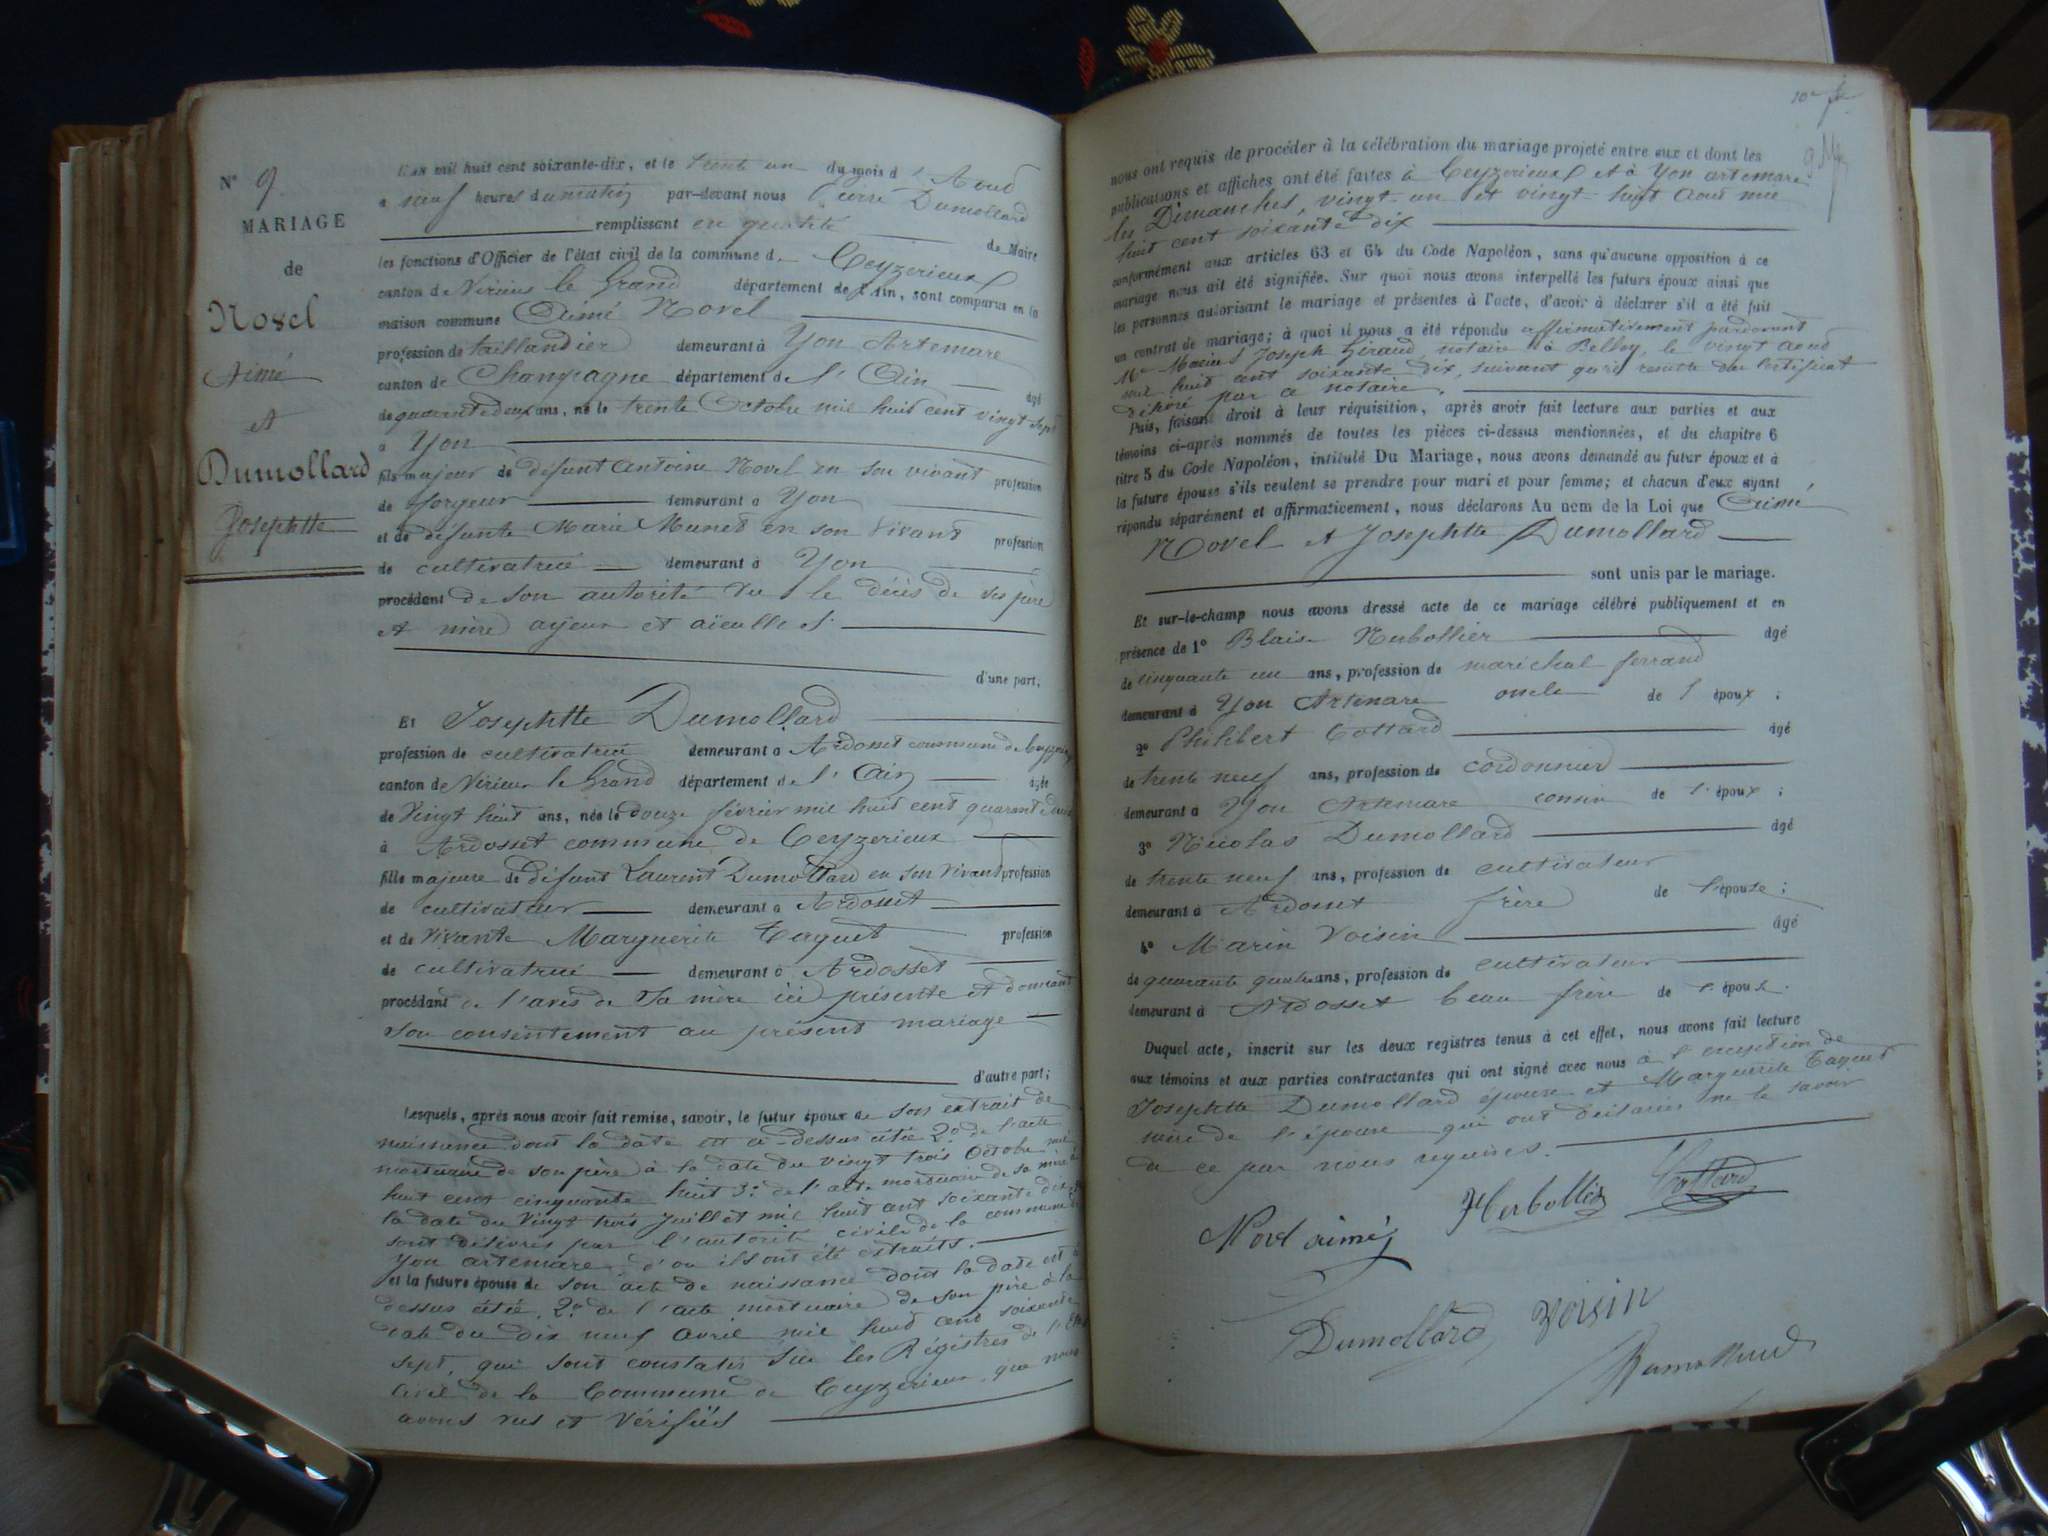 N° 9.
MARIAGE
de
Novel
Aimé
et
Dumollard
Josephtte
L'AN mil huit cent soixante-dix, et le trente un du mois d'Aoud
à neuf heures du matin par-devant nous Pierre Dumollard
remplissant en qualité de Maire
les fonctions d'Officier de l'état civil de la commune de Ceyzerieux
canton de Virieux le Grand département de l'Ain, sont comparus en la
maison commune Aimé Novel
profession de taillandier demeurant à Yon Artemare
canton de Champagne département de l'Ain âgé
de quarante deux ans, né le trente Octobre mil huid cent vingt sept
à Yon
fils majeur de défunt Antoine Novel en son vivant profession
de forgeur demeurant à Yon
et de défunte Marie Munet en son vivant profession
de cultivatrice demeurant à Yon
procédant de son autorité vu le décès de ses père
et mère ayeux et aïeulles
d'une part;
Et Josephtte Dumollard
profession de cultivatrice demeurant à Ardosset commune de Ceyzerieux
canton de Virieu le Grand département de l'Ain âgée
de vingt huit ans, née le douze février mil huid cent quarante deux
à Ardosset commune de Ceyzerieux
fille majeure de défunt Laurent Dumollard en son vivant profession
de cultivateur demeurant à Ardosset
et de vivante Marguerite profession
de cultivatrice demeurant à Ardosset
procédant de l'avis de sa mère ici présente et donnant
son consentement au présent mariage
d'autre part;
Lesquels, après nous avoir fait remise, savoir, le futur époux de son extrait de
naissance dont la date est ci-dessus citée 2° de l'acte
mortuaire de son père à la date du vingt trois Octobre mil
huit cent cinquante huit 3° de l'acte mortuaire de sa mère à
la date du vingt trois Juillet mil huit cent soixante dix
sont délivrés par l'autorité civile de la commune de
Yon artemare d'où ils ont été extraits.
et la future épouse de son acte de naissance dont la date est ci
dessus citée, 2° de l'acte mortuaire de son père à la
date du dix neuf avril mil huid cent soixante
sept, qui sont constatés sur les Régistres de l'Etat
civil de la Commune de Ceyzerieux, que nous
avons vus et vérifiés
10e
9
nous ont requis de procéder à la célébration du mariage projeté entre eux et dont les
publications et affiches ont été faites à Ceyzerieux et à Yon artemare
les Dimanches, vingt-un et vingt-huit aout mil
huit cent soixante dix
conformément aux articles 63 et 64 du Code Napoléon, sans qu'aucune opposition à ce
mariage nous ait été signifiée. Sur quoi nous avons interpellé les futurs époux ainsi que
les personnes autorisant le mariage et présentes à l'acte, d'avoir à déclarer s'il a été fait
un contrat de mariage; à quoi il nous a été répondu affirmativement pardevant
Me Joseph Giraud, notaire à Belley, le vingt aoud
mil huid cent soixante dix, suivant qu'il résulte du certificat
déposé par ce notaire.
Puis, faisant droit à leur réquisition, après avoir fait lecture aux parties et aux
témoins ci-après nommés de toutes les pièces ci-dessus mentionnées, et du chapitre 6
titre 5 du Code Napoléon, intitulé Du Mariage, nous avons demandé au futur époux et à
la future épouse s'ils veulent se prendre pour mari et pour femme; et chacun d'eux ayant
répondu séparément et affirmativement, nous déclarons Au nom de la Loi que Aimé
Novel et Josephtte Dumollard
sont unis par le mariage.
Et sur-le-champ nous avons dressé acte de ce mariage célébré publiquement et en
présence de 1° Blaise âgé
de cinquante un ans, profession de maréchal ferrand
demeurant à Yon Artemare oncle de l'époux;
2° Philibert Cottard âgé
de trente neuf ans, profession de cordonnier
demeurant à Yon Artemare cousin de l'époux;
3° Nicolas Dumollard âgé
de trente neuf ans, profession de cultivateur
demeurant à Ardosset frère de l'épouse;
4° Marin Voisin âgé
de quarante quatre ans, profession de cultivateur
demeurant à Ardosset beau frère de l'épouse.
Duquel acte, inscrit sur les deux registres tenus à cet effet, nous avons fait lecture
aux témoins et aux parties contractantes qui ont signé avec nous à l'exception de
Josephtte Dumollard épouse et Marguerite
mère de l'épouse qui ont déclarées ne le savoir
de ce par nous requises.
Novel aimé Herbollier Cottard
Dumollard Voisin
Dumollard